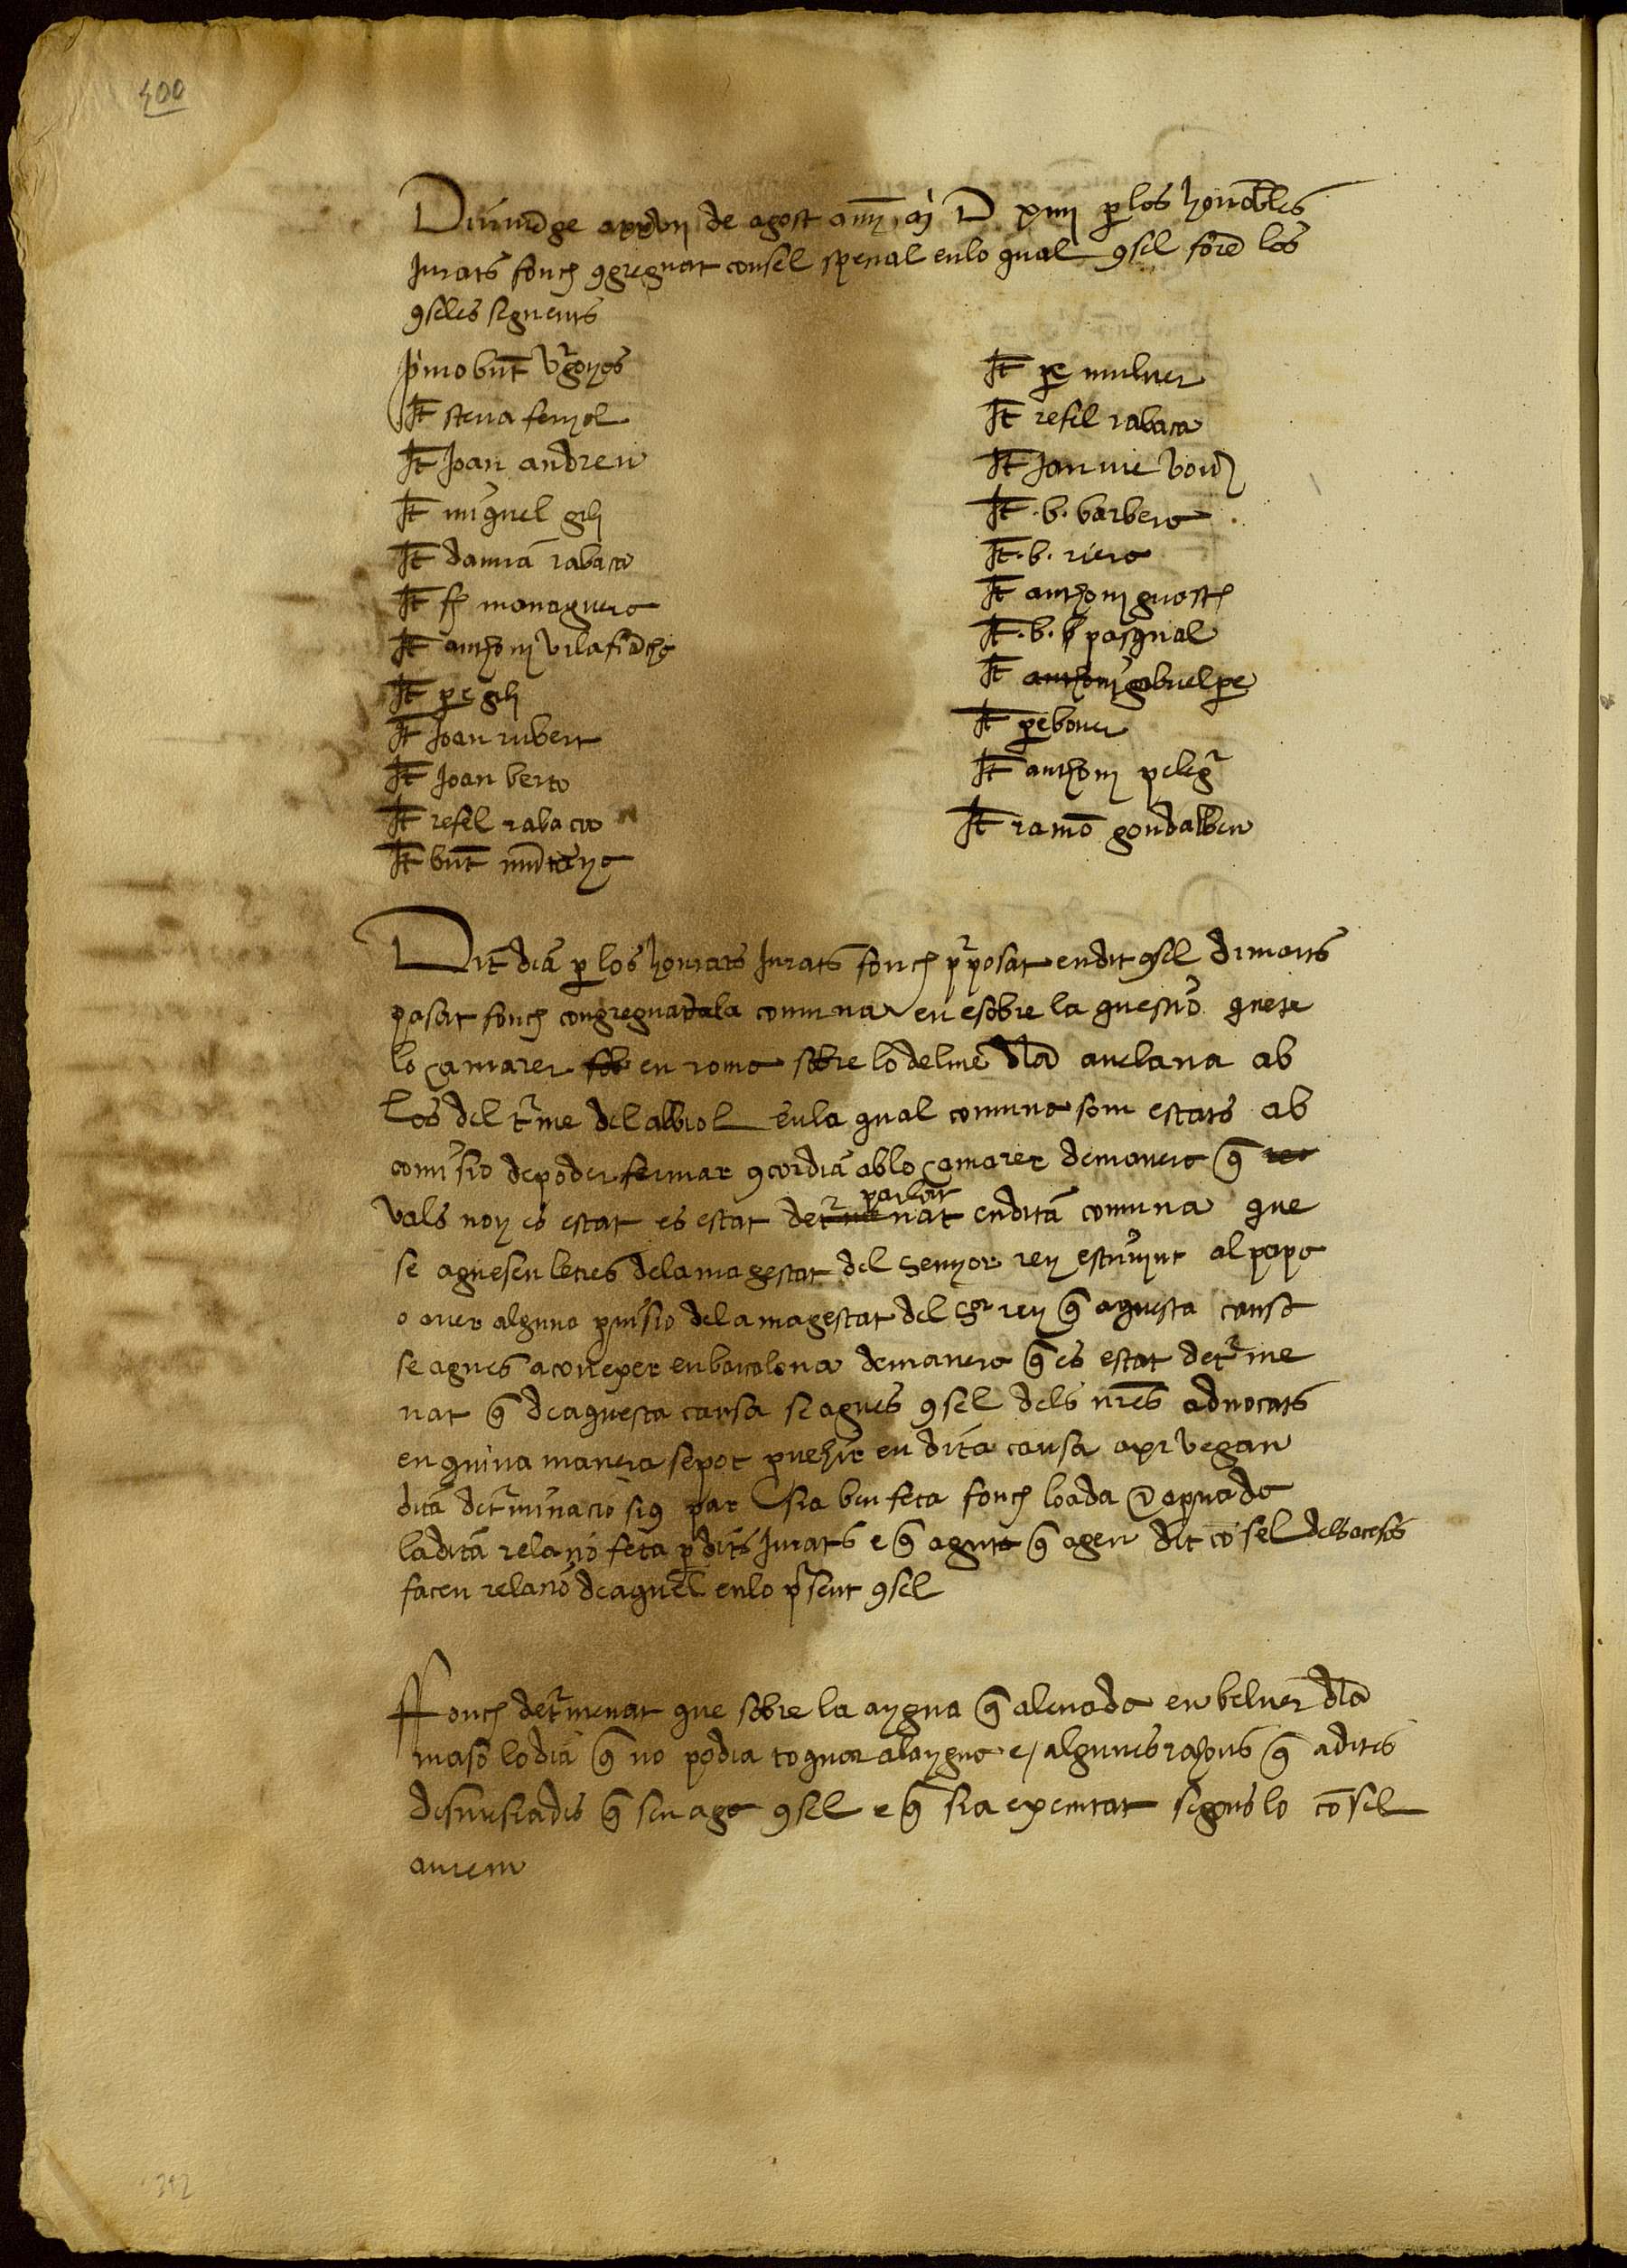 400
Diumēge a xxvii de agost anny M D xiiii per los honorables
Jurats fonch 9greguat consel special en lo qual 9sel forē los
9seles seguents
p̄mo bnt̄ v̓gonyos
It̄ steva fenyol
It̄ Joan andreu
It̄ miquel gili
It̄ damiā rabaca
It̄ ff managuera
It̄ anthoni vilafrācha
It̄ pe gili
It̄ Joan rubert
It̄ Joan berto
It̄ refel rabaca
It̄ bnt̄
It̄ pe muluer
It̄ refel rabaca
It̄ Jaume
It̄ .b. barbera
It̄ .b. riera
It̄ anthoni guasch
It̄ .b. pasqual
It̄ anthoni gabriel pe
It̄ pe boner
It̄ anthoni peleg̓
It̄ ramō gondalbeu
Dit dia p los honrats Jurats fonch pposat en dit 9sel dimarts
pasat fonch congreguada la comuna en e sobre la questio que te
lo camarer sob en roma sobre lo delme dla avelana ab
los del t̓me del albiol en la qual comuna som estats ab
comisio de poder fermar 9cordia ab lo camarer de manera q̄
vals noy es estat es estat det̓me parlat nat en dita comuna que
se aguesen letres de la magestat del senyor rey escrivint al papa
o aver alguna pvisio de la magestat del Sor rey q̄ aquesta causa
se agues a conexer en barcelona de manera q̄ es estat det̓me
nat q̄ de aquesta causa se agues 9sel dels nr̄es advocats
en quina manera se pot pvehir en dita causa axi vegan
dita det̓minacio si9 par sia ben feta fonch loada e apvada
la dita relacio feta p dits Jurats e q̄ aguts q̄ agen dit cōsel dels acesos
facen relacio de aquel en lo p̄sent 9sel
Ffonch det̓menat que sobre la aygua q̄ a levada en belver dla
maso lo dia q̄ no podia toquar al aygua e / algunes rahons q̄ a dites
desvesiades q̄ sen aga 9sel e q̄ sia executat segons lo cōsel
aurem
392